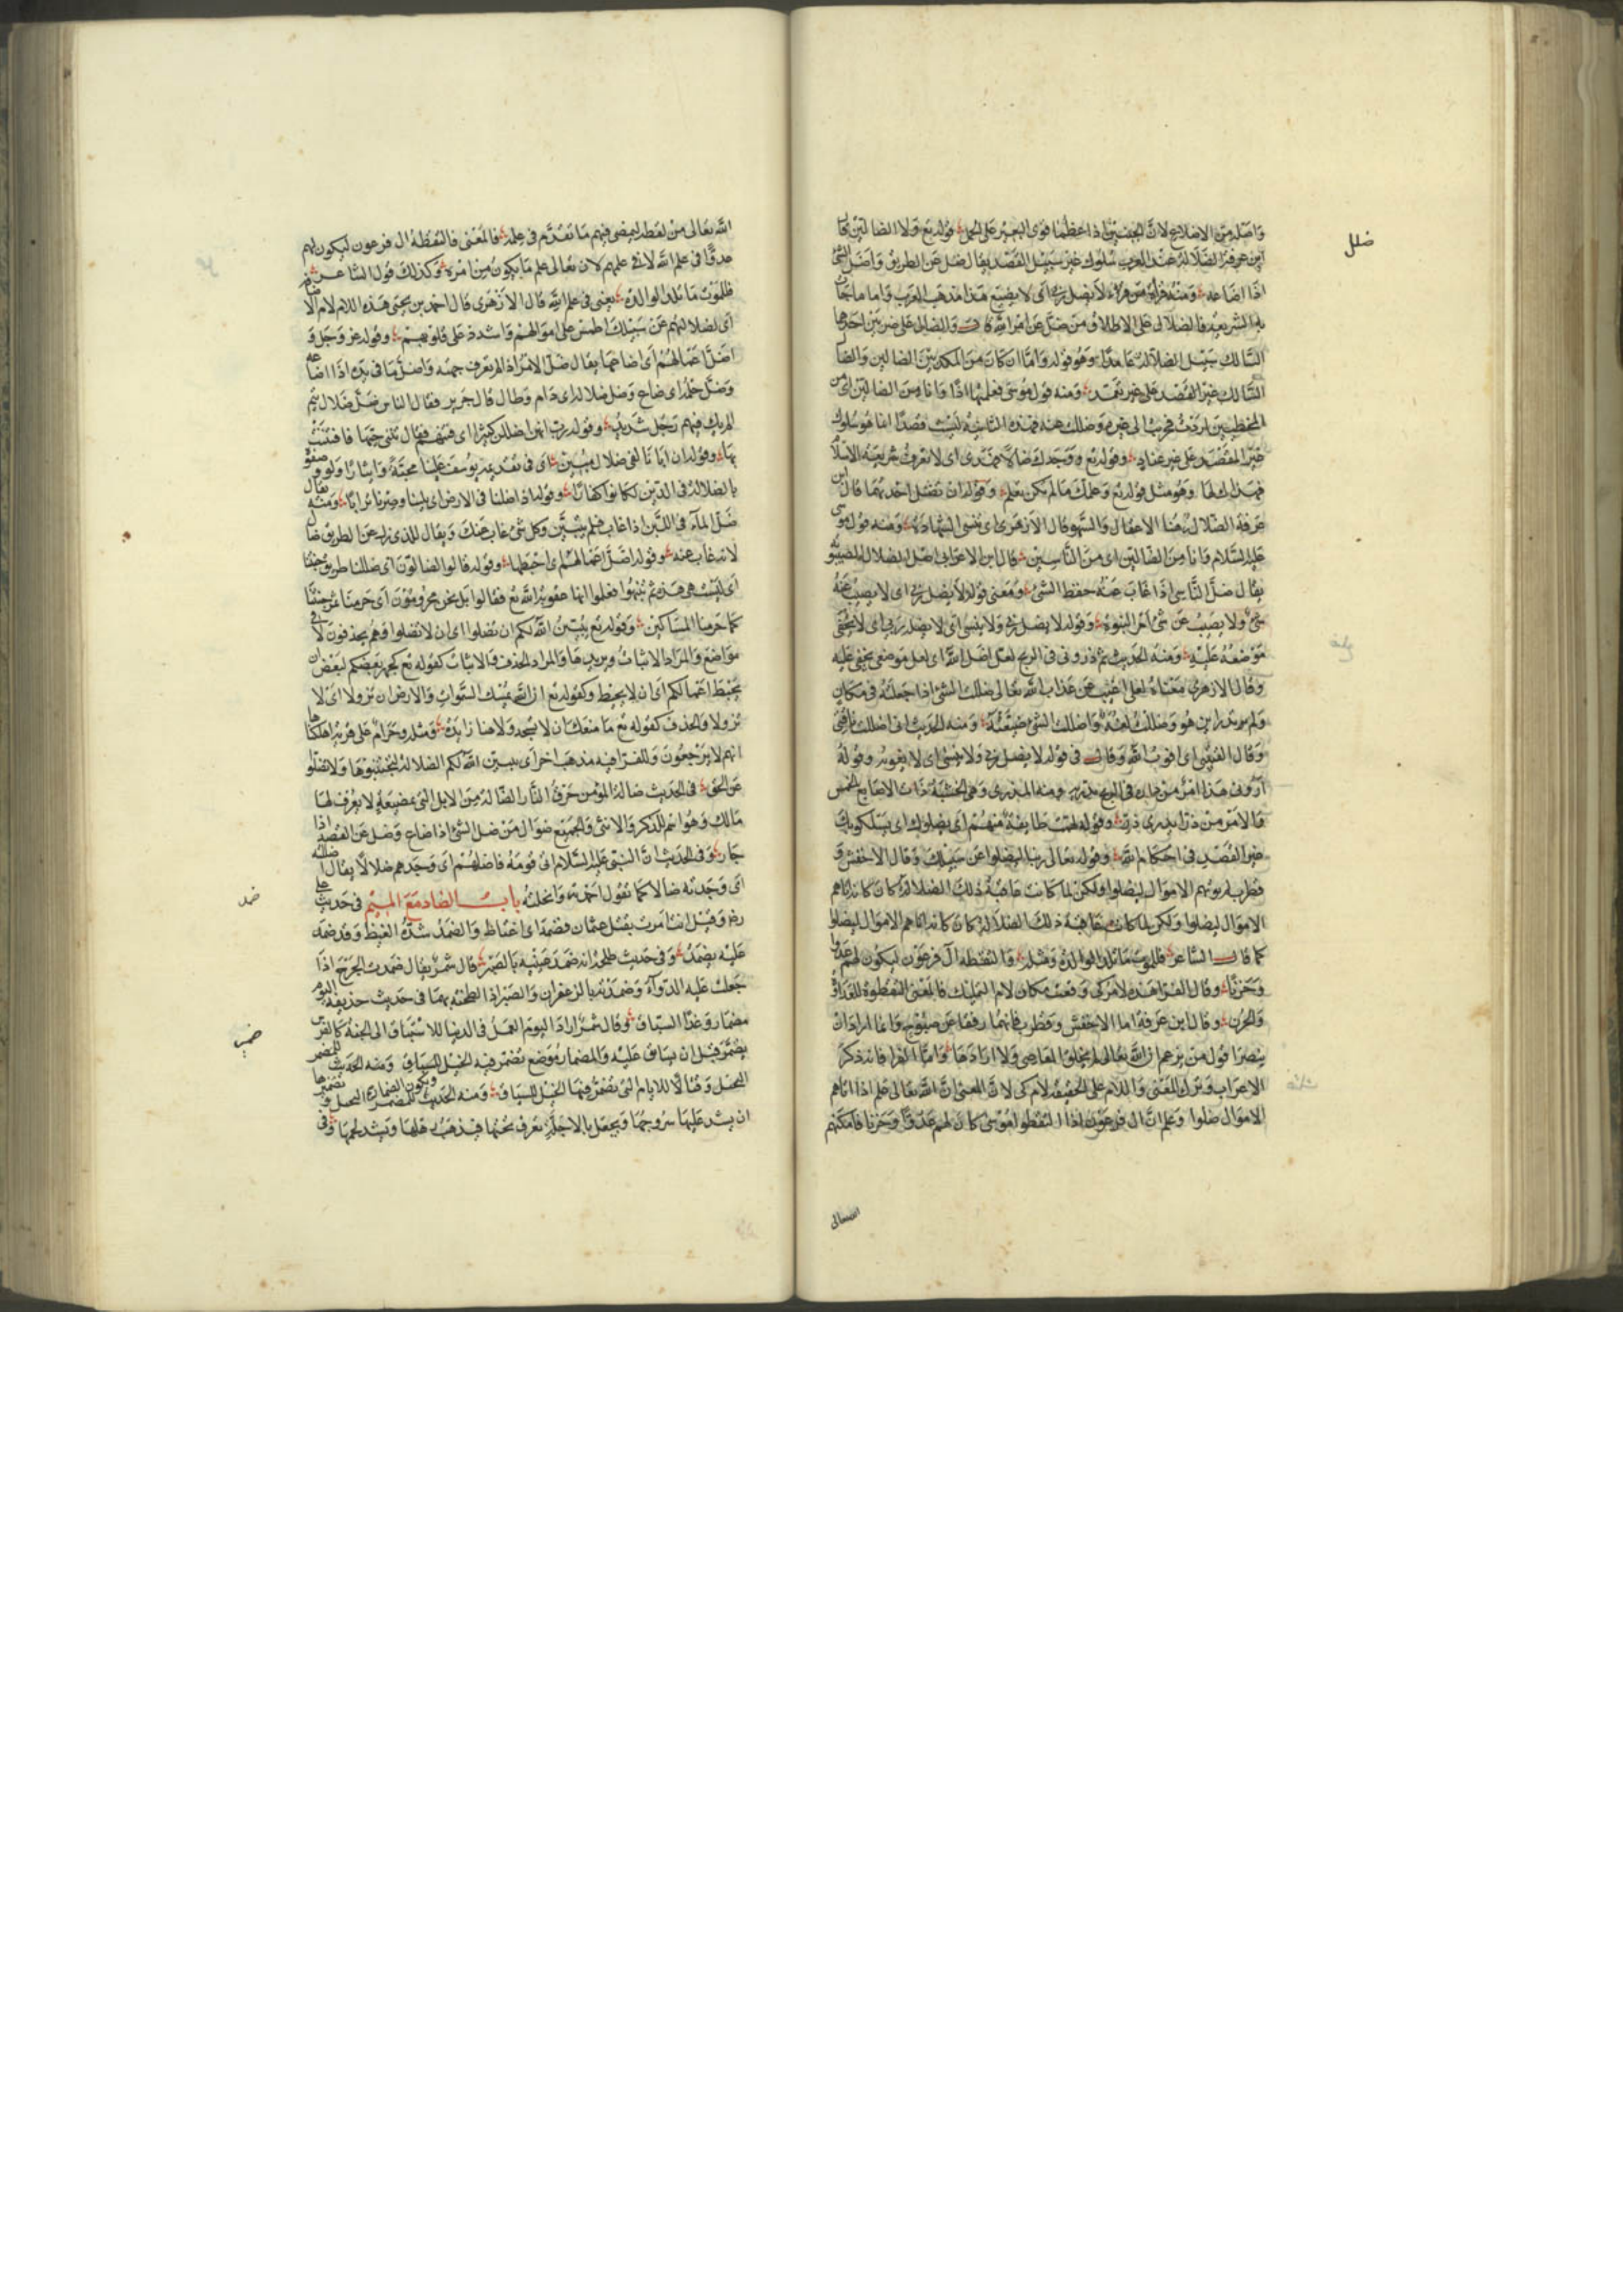 ضلل
وَاصله من الاضلاع لانّ الجنبين اذا عظما قوى البعير على الحمل قوله تع ولا الضالين قال
ابن عرفة الضلالة عند العرب سلوك غير سبيل القصد يقال ضل عن الطريق وَاضل الشئ
اذا اضاعه ومنه قراءة من قرأ لا يضل ربى اى لا يضيع هذا مذهب العرب واما ما جاء
به الشريعة فالضلال على الاطلاق من ضل عن امر الله قال والضال على ضربين احدهما
السّالك سبيل الضلالة عامدًا وهو قوله وامّا ان كان من المكذبين الضالين والضا
السّالك غير القصد على غير تعمّد ومنه قول موسى فعلتها اذًا وانا من الضالين اى من
المخطيين
غير المقصد على غير عناد وقوله تع ووجدك ضالا فهدى اى لا تعرف شريعة الاسلام
فهداك لها وهو مثل قوله تع وعلمك ما لم تكن تعلم وقوله ان تضل احديهما قال ابن
عرفة الضلال ههنا الاغفال والسّهو قال الازهرى اى تنسى الشهادة ومنه قول موسى
عليه السّلام وانا من الضالين اى من النّاسين قال ابن الاعرابى اصل الضلال الغيبوبة
يقال ضلّ النّاسى اذا غاب عنه حفظ الشئ ومعنى قوله لا يضل ربى اى لا يغيب عنه
شئ ولا يغيب عن شئ وقوله لا يضل ربى ولا ينسى اى لا يضله ربى اى لا يخفى
موضعه عليه ومنه الحديث ثم ذرونى فى الريح لعلى اضل الله اى لعل موضعى يخفى عليه
وقال الازهرى معناه لعلى اغيب عن عذاب الله تعالى ضللت الشئ اذا جعلته فى مكان
ولم تدر اين هو وضللت لغة واضللت الشئ ضيعته ومنه الحديث انى اضللت ناقتى
وقال القتيبى اى افوت الله وقال فى قوله لا يضل ربى ولا ينسى اى لا يفوته وقوله
ومنه المذرى وهى الخشبة ذات الاصابع الخمس
والامر من ذرا يذرى ذرت وقوله لهمّت طايفة منهم اى يضلوك اى يسلكوا بك
غير القصد فى احكام الله وقوله تعالى ربنا ليضلوا عن سبيلك وقال الاخفش و
قطرب لم يوتهم الاموال ليضلوا ولكن لما كانت عاقبة ذلك الضلالة كان كانه اتاهم
الاموال ليضلوا ولكن لما كان عاقبة ذلك الضلالة كان كانه اتاهم الاموال ليضلوا
كما قال الشاعر فللموت ما تلد الوالدة ومثله فالتقطه آل فرعون ليكون لهم عدوا
وحزنًا وقال الفراء هذه لام كى وقعت مكان لام التمليك فالمعنى التقطوه للعداوة
والحزن وقال ابن عرفة اما الاخفش وقطرب فانهما رفقا عن صيوح وانما ارادا ان
ينصرا قول من يزعم ان الله تعالى لم يخلق المعاصى ولا ارادها وامّا الفراء فانه ذكر
الاعراب وترك المعنى واللام على الحقيقة لام كى لانّ المعنى انّ الله تعالى علم اذا اتاهم
الاموال ضلوا وعلم انّ ال فرعون اذا التقطوا موسى كان لهم عدوّا وحزنا فامكنهم
الله تعالى
الله تعالى من لقطه ليمضى فيهم ما تقدّم فى علمه فالمعنى فالتقطه ال فرعون ليكون لهم
عدوًّا فى علم الله لا فى علمهم لان تعالى علم ما يكون من امره وكذلك قول الشاعر
فللموت ما تلد الوالدة يعنى فى علم الله قال الازهرى قال احمد بن يحيى هذه اللام لام الا
اى لضلالتهم عن سبيلك اطمس على اموالهم واشدد على قلوبهم وقوله عز وجل و
اضلّ اعمالهم اى اضاعها يقال ضلّ الامر اذا لم تعرف جهته واضل ما فى يده اذا اضاعه
وضلّ حلمه اى ضاع وضل ضلاله اى دام وطال قال جرير فقال الناس ضلّ ضلال تيم
الم يك فيهم رجل شديد وقوله رب انهن اضللن كثيرا اى
بها وقوله ان ابانا لفى ضلال مبين اى فى تقديم يوسف علينا محبّة وايثارا ولو وصفوه
بالضلالة فى الدّين لكانوا كفارًا وقوله اذا ضللنا فى الارض اى بلينا وصرنا ترابًا ومنه يقال
ضلّ الماء فى اللّبن اذا غاب فلم يتبيّن وكل شئ غاب عنك ويقال للذى زل عن الطريق ضال
لانه غاب عنه وقوله اضلّ اعمالهم اى احبطها وقوله قالوا انا لضالون اى ضللنا طريق جنتنا
اى ليست هى هذه ثم تنبّهوا فعلوا انها عقوبة الله تع فقالوا بل نحن محرومون اى حرمنا ثمر جنتنا
كما حرمنا المساكين وقوله تع يبيّن الله لكم ان تضلوا اى ان لا تضلوا وهم يحذفون لا فى
مواضع والمراد الاثبات ويريدها والمراد الحذف فالاثبات كقوله تع كجهر بعضكم لبعض ان
تحبط اعمالكم اى ان لا يحبط وكقوله تع ان الله يمسك السموات والارض ان تزولا اى لا
تزولا والحذف كقوله تع ما منعك ان لا تسجد ولا هنا زايدة ومثله وحرام على قرية اهلكناها
انهم لا يرجعون وللفراء فيه مذهب اخر اى يبين الله لكم الضلالة لتجتنبوها ولا تضلوا
عن الحق فى الحديث ضالة المؤمن حرق النّار الضّالة من الابل التى بمضيعة لا يعرف لها
مالك وهو اسم للذكر والانثى والجميع ضوال من ضل الشئ اذا ضاع وضل عن القصد اذا
جار وفى الحديث انّ النبى عليه السّلام اتى قومه فاضلهم اى وجدهم ضلالا يقال اضللته
اى وجدته ضالا كما تقول احمدته وابخلته باب الضاد مع الميم فى حديث على
ضمد
رضه وقيل انت امرت بقتل عثمان فضمد اى اغتاظ والضمد شدّة الغيظ وقد ضمد
عليه يضمد وفى حديث طلحة انه ضمد عينيه بالصبر قال شمر يقال ضمدت الجرح اذا
جعلت عليه الدواء وضمدته بالزعفران والصبر اذا لطخته بهما فى حديث حذيفة اليوم
ضمر
مضمار وغدًا السباق وقال شمر اراد اليوم العمل فى الدنيا للاستباق الى الجنة كالفرس
يضمّر قبل ان يسابق عليه والمضمار موضع تضمر فيه الخيل للسباق ومنه الحديث للمضمر
وقتًا للايام التى تضمر فيها الخيل للسباق ومنه الحديث
ان يشد عليها سروجها ويجعل بالاجلّة تعرق تحتها فيذهب رهلها ويشتد لحمها وفى